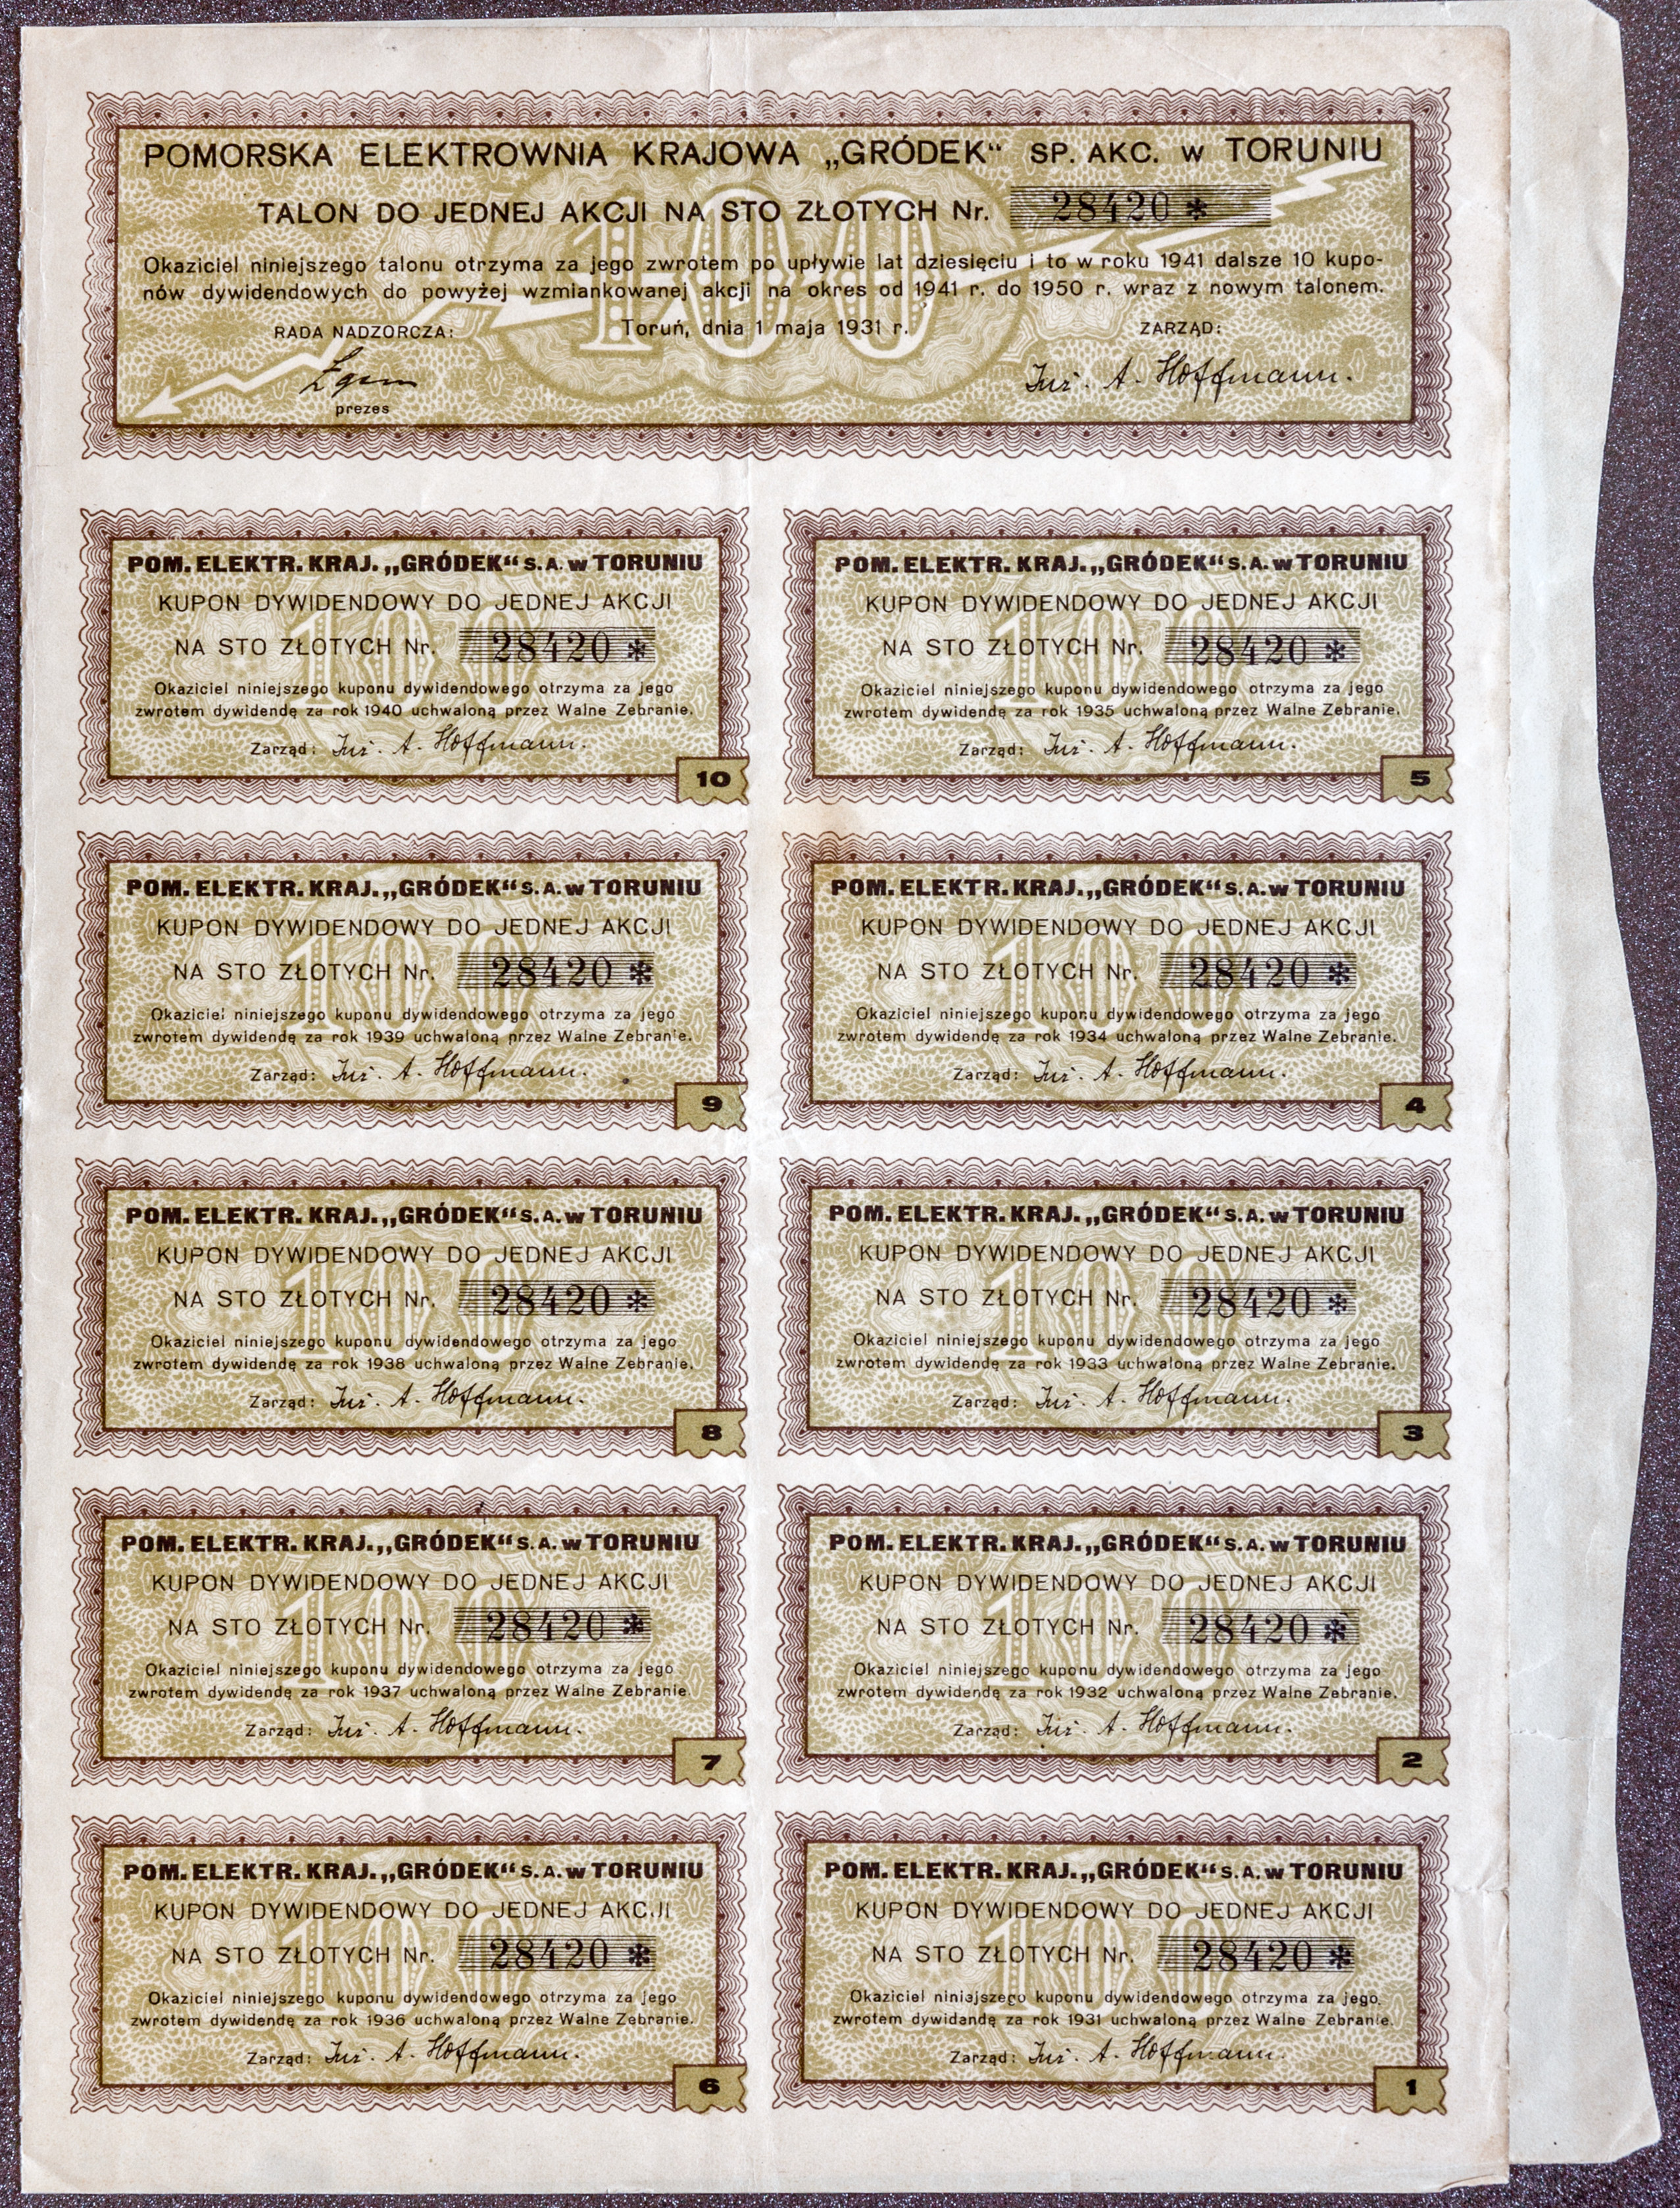 POMORSKA ELEKTROWNIA KRAJOWA „GRÓDEK“ SP. AKC. w TORUNIU
TALON DO JEDNEJ AKCJI NA STO ZŁOTYCH Nr. 28420 *
100
Okaziciel niniejszego talonu otrzyma za jego zwrotem po upływie lat dziesięciu i to w roku 1941 dalsze 10 kupo-
nów dywidendowych do powyżej wzmiankowanej akcji na okres od 1941 r. do 1950 r. wraz z nowym talonem.
RADA NADZORCZA: Toruń, dnia 1 maja 1931 r. ZARZĄD:
Inż. A. Hoffmann.
prezes
POM. ELEKTR. KRAJ. „GRÓDEK“ S. A. w TORUNIU
KUPON DYWIDENDOWY DO JEDNEJ AKCJI
100
NA STO ZŁOTYCH Nr. 28420 *
Okaziciel niniejszego kuponu dywidendowego otrzyma za jego
zwrotem dywidendę za rok 1940 uchwaloną przez Walne Zebranie.
Zarząd: Inż. A. Hoffmann.
10
POM. ELEKTR. KRAJ. „GRÓDEK“ S. A. w TORUNIU
KUPON DYWIDENDOWY DO JEDNEJ AKCJI
100
NA STO ZŁOTYCH Nr. 28420 *
Okaziciel niniejszego kuponu dywidendowego otrzyma za jego
zwrotem dywidendę za rok 1935 uchwaloną przez Walne Zebranie.
Zarząd: Inż. A. Hoffmann.
5
POM. ELEKTR. KRAJ. „GRÓDEK“ S. A. w TORUNIU
KUPON DYWIDENDOWY DO JEDNEJ AKCJI
100
NA STO ZŁOTYCH Nr. 28420 *
Okaziciel niniejszego kuponu dywidendowego otrzyma za jego
zwrotem dywidendę za rok 1939 uchwaloną przez Walne Zebranie.
Zarząd: Inż. A. Hoffmann.
9
POM. ELEKTR. KRAJ. „GRÓDEK“ S. A. w TORUNIU
KUPON DYWIDENDOWY DO JEDNEJ AKCJI
100
NA STO ZŁOTYCH Nr. 28420 *
Okaziciel niniejszego kuponu dywidendowego otrzyma za jego
zwrotem dywidendę za rok 1934 uchwaloną przez Walne Zebranie.
Zarząd: Inż. A. Hoffmann.
4
POM. ELEKTR. KRAJ. „GRÓDEK“ S. A. w TORUNIU
KUPON DYWIDENDOWY DO JEDNEJ AKCJI
100
NA STO ZŁOTYCH Nr. 28420 *
Okaziciel niniejszego kuponu dywidendowego otrzyma za jego
zwrotem dywidendę za rok 1938 uchwaloną przez Walne Zebranie.
Zarząd: Inż. A. Hoffmann.
8
POM. ELEKTR. KRAJ. „GRÓDEK“ S. A. w TORUNIU
KUPON DYWIDENDOWY DO JEDNEJ AKCJI
100
NA STO ZŁOTYCH Nr. 28420 *
Okaziciel niniejszego kuponu dywidendowego otrzyma za jego
zwrotem dywidendę za rok 1933 uchwaloną przez Walne Zebranie.
Zarząd: Inż. A. Hoffmann.
3
POM. ELEKTR. KRAJ. „GRÓDEK“ S. A. w TORUNIU
KUPON DYWIDENDOWY DO JEDNEJ AKCJI
100
NA STO ZŁOTYCH Nr. 28420 *
Okaziciel niniejszego kuponu dywidendowego otrzyma za jego
zwrotem dywidendę za rok 1937 uchwaloną przez Walne Zebranie.
Zarząd: Inż. A. Hoffmann.
7
POM. ELEKTR. KRAJ. „GRÓDEK“ S. A. w TORUNIU
KUPON DYWIDENDOWY DO JEDNEJ AKCJI
100
NA STO ZŁOTYCH Nr. 28420 *
Okaziciel niniejszego kuponu dywidendowego otrzyma za jego
zwrotem dywidendę za rok 1932 uchwaloną przez Walne Zebranie.
Zarząd: Inż. A. Hoffmann.
2
POM. ELEKTR. KRAJ. „GRÓDEK“ S. A. w TORUNIU
KUPON DYWIDENDOWY DO JEDNEJ AKCJI
100
NA STO ZŁOTYCH Nr. 28420 *
Okaziciel niniejszego kuponu dywidendowego otrzyma za jego
zwrotem dywidendę za rok 1936 uchwaloną przez Walne Zebranie.
Zarząd: Inż. A. Hoffmann.
6
POM. ELEKTR. KRAJ. „GRÓDEK“ S. A. w TORUNIU
KUPON DYWIDENDOWY DO JEDNEJ AKCJI
100
NA STO ZŁOTYCH Nr. 28420 *
Okaziciel niniejszego kuponu dywidendowego otrzyma za jego
zwrotem dywidendę za rok 1931 uchwaloną przez Walne Zebranie.
Zarząd: Inż. A. Hoffmann.
1